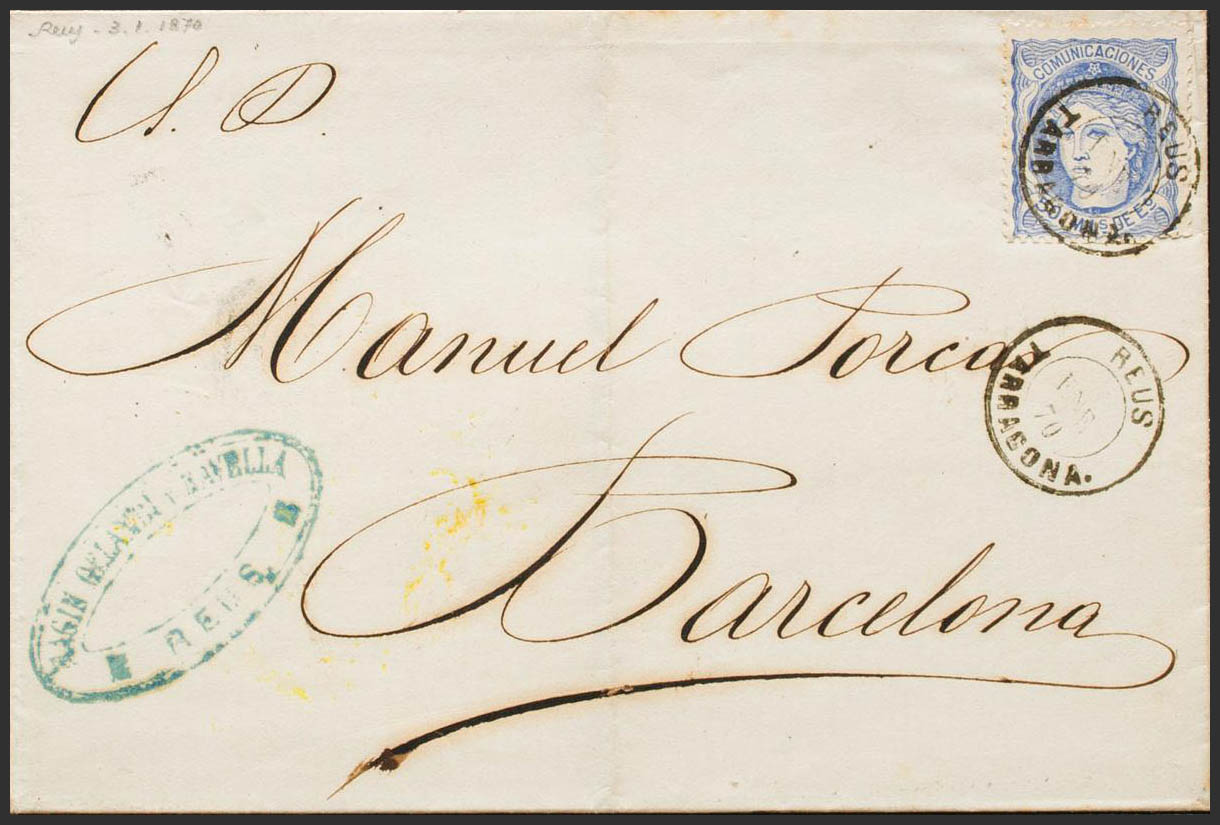 Reus - 3. 1. 1870
S. D.
COMUNICACIONES
50 MILS DE Eo
REUS
TARRAGONA.
Manuel Porcar
REUS
ENE
70
TARRAGONA.
Barcelona
REUS